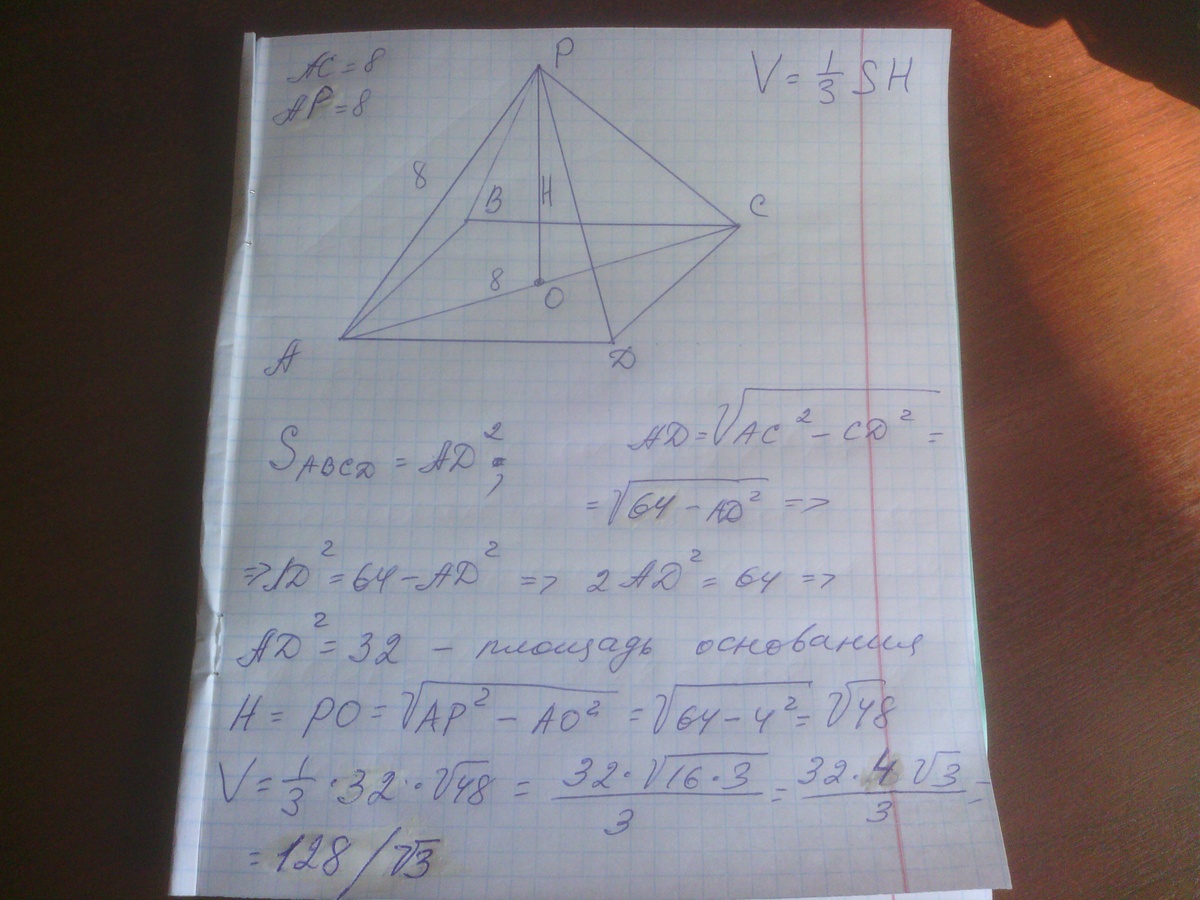 AC = 8
AP = 8
V = 1/3 SH
P
8
B
H
C
8
O
A
D
S_ABCD = AD²;
AD = √(AC² − CD²) =
= √(64 − AD²) =>
=> AD² = 64 − AD² => 2AD² = 64 =>
AD² = 32 − площадь основания
H = PO = √(AP² − AO²) = √(64 − 4²) = √48
V = 1/3 · 32 · √48 = 32 · √(16 · 3) / 3 = 32 · 4 √3 / 3 =
= 128 / √3